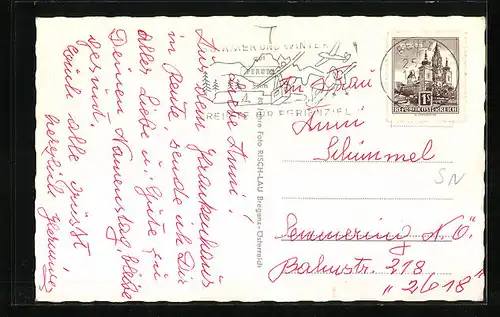 Liebe Anni!
Aus dem Krankenhaus
in Reute sende ich Dir
alles Liebe u. Gute zu
Deinem Namenstag, bleibe
gesund.
Euch alle grüsst
herzlich
SOMMER UND WINTER
REUTTE
FERIENZIEL
25
REPUBLIK ÖSTERREICH
1S
An Frau
Anni
Schimmel
Semmering N.Ö.
Bahnstr. 218
"2618"
SN
Foto RISCH-LAU Bregenz-Österreich